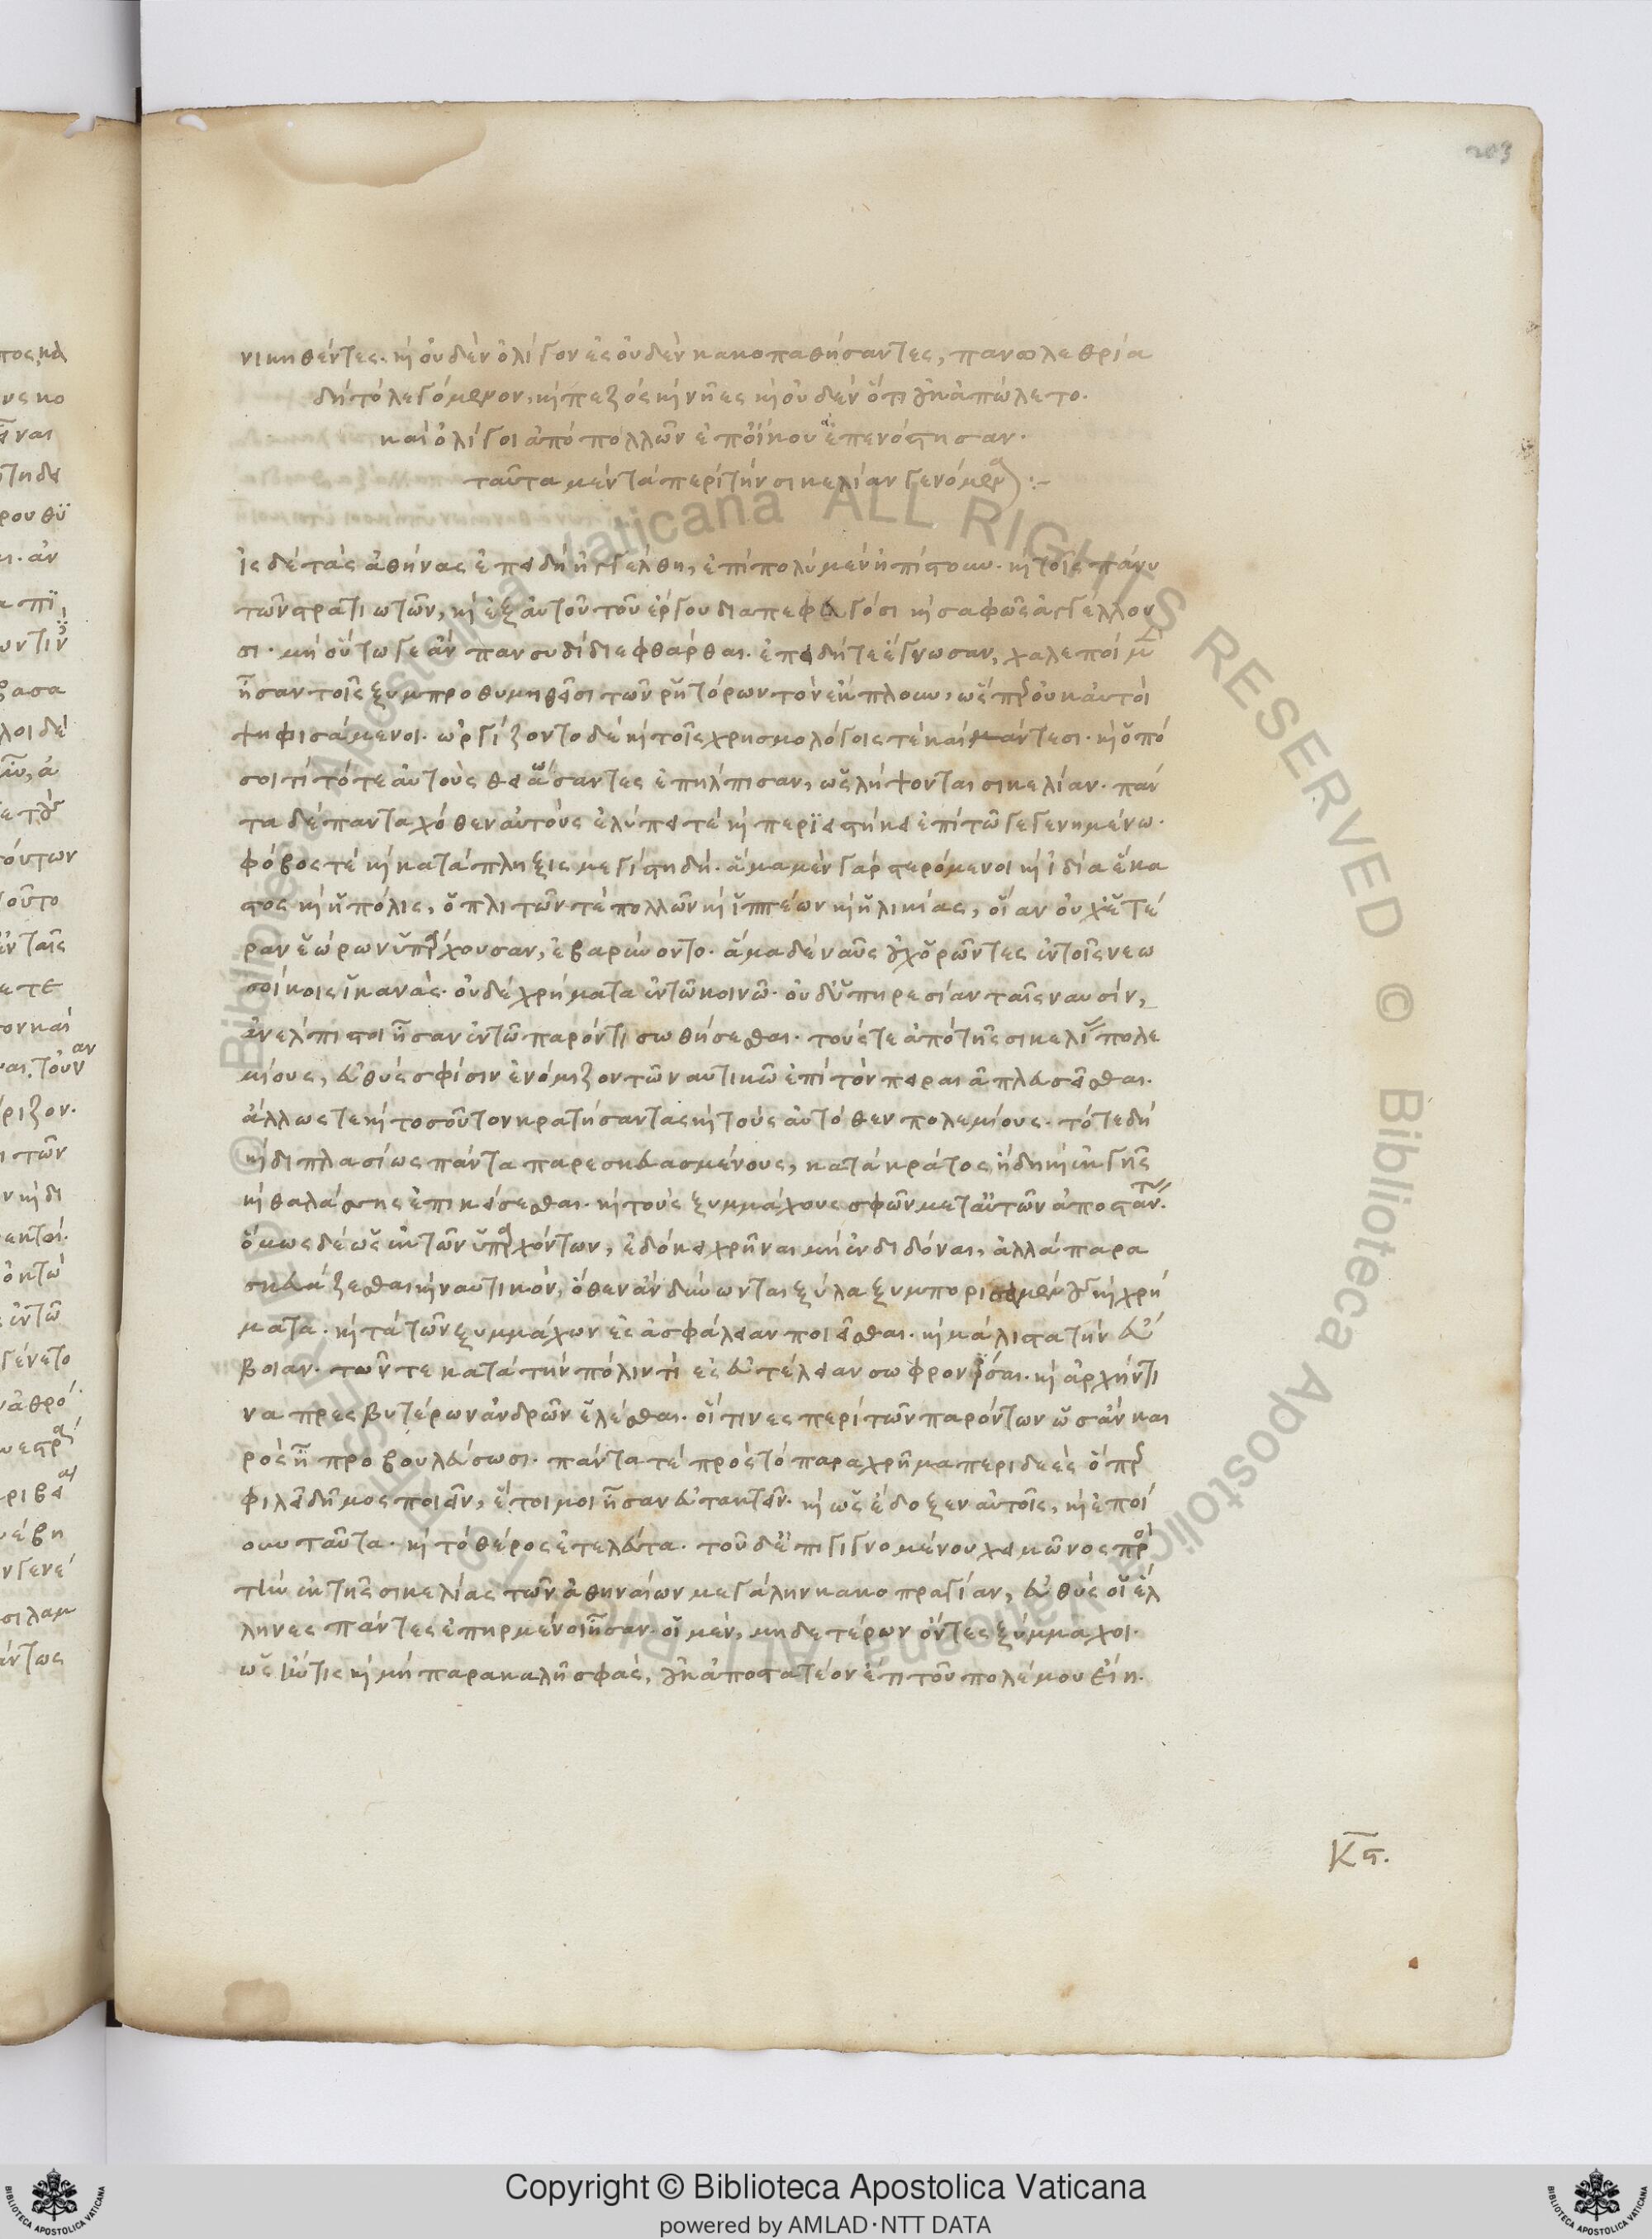 203
νικηθέντες. καὶ οὐδὲν ὀλίγον ἐς οὐδὲν κακοπαθήσαντες, πανωλεθρία
δὴ τὸ λεγόμενον, καὶ πεζὸς καὶ νῆες καὶ οὐδὲν ὅτι οὐκ ἀπώλετο.
καὶ ὀλίγοι ἀπὸ πολλῶν ἐπ' οἴκου ἀπενόστησαν.
ταῦτα μὲν τὰ περὶ τὴν σικελίαν γενόμενα :-
ἐς δὲ τὰς ἀθήνας ἐπειδὴ ἠγγέλθη, ἐπὶ πολὺ μὲν ἠπίστουν. καὶ τοῖς πάνυ
τῶν στρατιωτῶν, καὶ ἐξ αὐτοῦ τοῦ ἔργου διαπεφευγόσι καὶ σαφῶς ἀγγέλλου
σι. μὴ οὕτω γε ἂν πανσυδὶ διεφθάρθαι. ἐπειδή τε ἔγνωσαν, χαλεποὶ μὲν
ἦσαν τοῖς ξυμπροθυμηθεῖσι τῶν ῥητόρων τὸν ἔκπλουν, ὥσπερ οὐκ αὐτοὶ
ψηφισάμενοι. ὠργίζοντο δὲ καὶ τοῖς χρησμολόγοις τὲ καὶ μάντεσι. καὶ ὁπό
σοι τί τότε αὐτοὺς θειάσαντες ἐπήλπισαν, ὡς λήψονται σικελίαν. πάν
τα δὲ πανταχόθεν αὐτοὺς ἐλύπει τὲ καὶ περιειστήκει ἐπὶ τῶ γεγενημένω.
φόβος τὲ καὶ κατάπληξις μεγίστη δή. ἅμα μὲν γὰρ στερόμενοι καὶ ἰδία ἕκα
στος καὶ ἡ πόλις, ὁπλιτῶν τὲ πολλῶν καὶ ἱππέων καὶ ἡλικίας, οἵαν οὐχ ἑτέ
ραν ἑώρων ὑπάρχουσαν, ἐβαρύνοντο. ἅμα δὲ ναῦς οὐχ ὁρῶντες ἐν τοῖς νεω
σοίκοις ἱκανὰς. οὐδὲ χρήματα ἐν τῶ κοινῶ. οὐδ' ὑπηρεσίαν ταῖς ναυσίν,
ἀνέλπιστοι ἦσαν ἐν τῶ παρόντι σωθήσεσθαι. τούς τε ἀπὸ τῆς σικελίας πολε
μίους, εὐθὺς σφίσιν ἐνόμιζον τῶ ναυτικῶ ἐπὶ τὸν πειραιᾶ πλευσεῖσθαι.
ἄλλως τε καὶ τοσοῦτον κρατήσαντας καὶ τοὺς αὐτόθεν πολεμίους. τότε δὴ
καὶ διπλασίως πάντα παρεσκευασμένους, κατὰ κράτος ἤδη καὶ ἐκ γῆς
καὶ θαλάσσης ἐπικείσεσθαι. καὶ τοὺς ξυμμάχους σφῶν μετ' αὐτῶν ἀποστάντας.
ὅμως δὲ ὡς ἐκ τῶν ὑπαρχόντων, ἐδόκει χρῆναι μὴ ἐνδιδόναι, ἀλλὰ παρα
σκευάζεσθαι καὶ ναυτικὸν, ὅθεν ἂν δύνωνται ξύλα ξυμπορισαμένους καὶ χρή
ματα. καὶ τὰ τῶν ξυμμάχων ἐς ἀσφάλειαν ποιεῖσθαι. καὶ μάλιστα τὴν εὔ
βοιαν. τῶν τε κατὰ τὴν πόλιν τὶ ἐς εὐτέλειαν σωφρονίσαι. καὶ ἀρχήν τι
να πρεσβυτέρων ἀνδρῶν ἑλέσθαι. οἵτινες περὶ τῶν παρόντων ὡς ἂν και
ρὸς ἦ προβουλεύσωσι. πάντα τὲ πρὸς τὸ παραχρῆμα περιδεὲς ὅπερ
φιλεῖ δῆμος ποιεῖν, ἕτοιμοι ἦσαν εὐτακτεῖν. καὶ ὡς ἔδοξεν αὐτοῖς, καὶ ἐποί
ουν ταῦτα. καὶ τὸ θέρος ἐτελεύτα. τοῦ δ' ἐπιγιγνομένου χειμῶνος πρὸς
τὴν ἐκ τῆς σικελίας τῶν ἀθηναίων μεγάλην κακοπραγίαν, εὐθὺς οἱ ἕλ
ληνες πάντες ἐπηρμένοι ἦσαν. οἱ μὲν, μηδετέρων ὄντες ξύμμαχοι.
ὡς ἤν τις καὶ μὴ παρακαλῆ σφᾶς, οὐκ ἀποστατέον ἔτι τοῦ πολέμου εἴη.
κς.
Copyright © Biblioteca Apostolica Vaticana
powered by AMLAD·NTT DATA